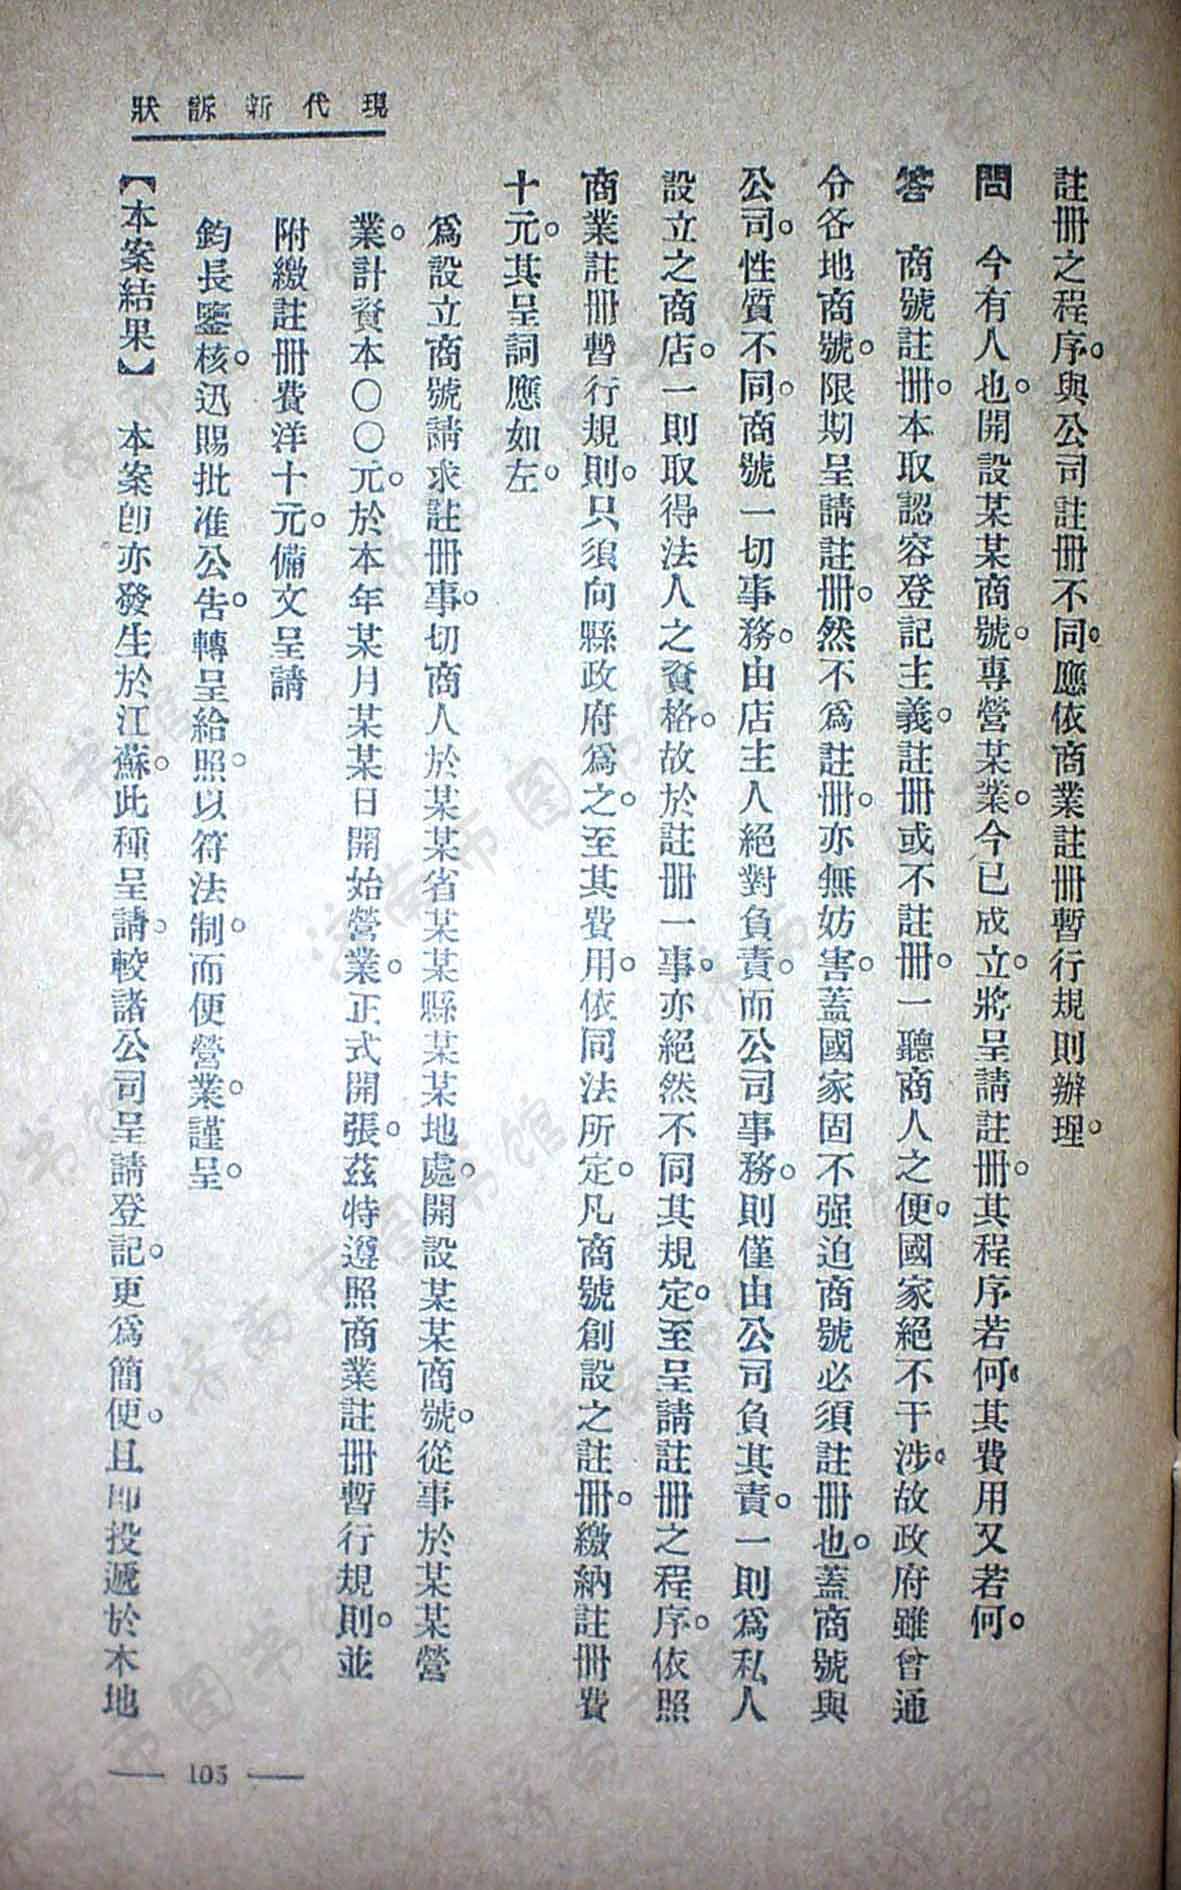 現代新訴狀
註冊之程序。與公司註冊不同。應依商業註冊暫行規則辦理。
問　今有人也。開設某某商號。專營某業。今已成立。將呈請註冊。其程序若何。其費用又若何。
答　商號註冊。本取認容登記主義。註冊或不註冊。一聽商人之便。國家絕不干涉。故政府雖曾通
令各地商號。限期呈請註冊。然不爲註冊。亦無妨害。蓋國家固不强迫商號必須註冊也。蓋商號與
公司。性質不同。商號一切事務。由店主人絕對負責。而公司事務。則僅由公司負其責。一則爲私人
設立之商店。一則取得法人之資格。故於註冊一事。亦絕然不同其規定。至呈請註冊之程序。依照
商業註冊暫行規則。只須向縣政府爲之。至其費用。依同法所定。凡商號創設之註冊。繳納註冊費
十元。其呈詞應如左。
爲設立商號請求註冊事。切商人於某某省某某縣某某地處。開設某某商號。從事於某某營
業。計資本〇〇元。於本年某月某某日開始營業。正式開張。茲特遵照商業註冊暫行規則。並
附繳註冊費洋十元。備文呈請
鈞長鑒核。迅賜批准公告。轉呈給照。以符法制。而便營業。謹呈。
【本案結果】　本案卽亦發生於江蘇。此種呈請。較諸公司呈請登記。更爲簡便。且卽投遞於本地
105
济南市图书馆